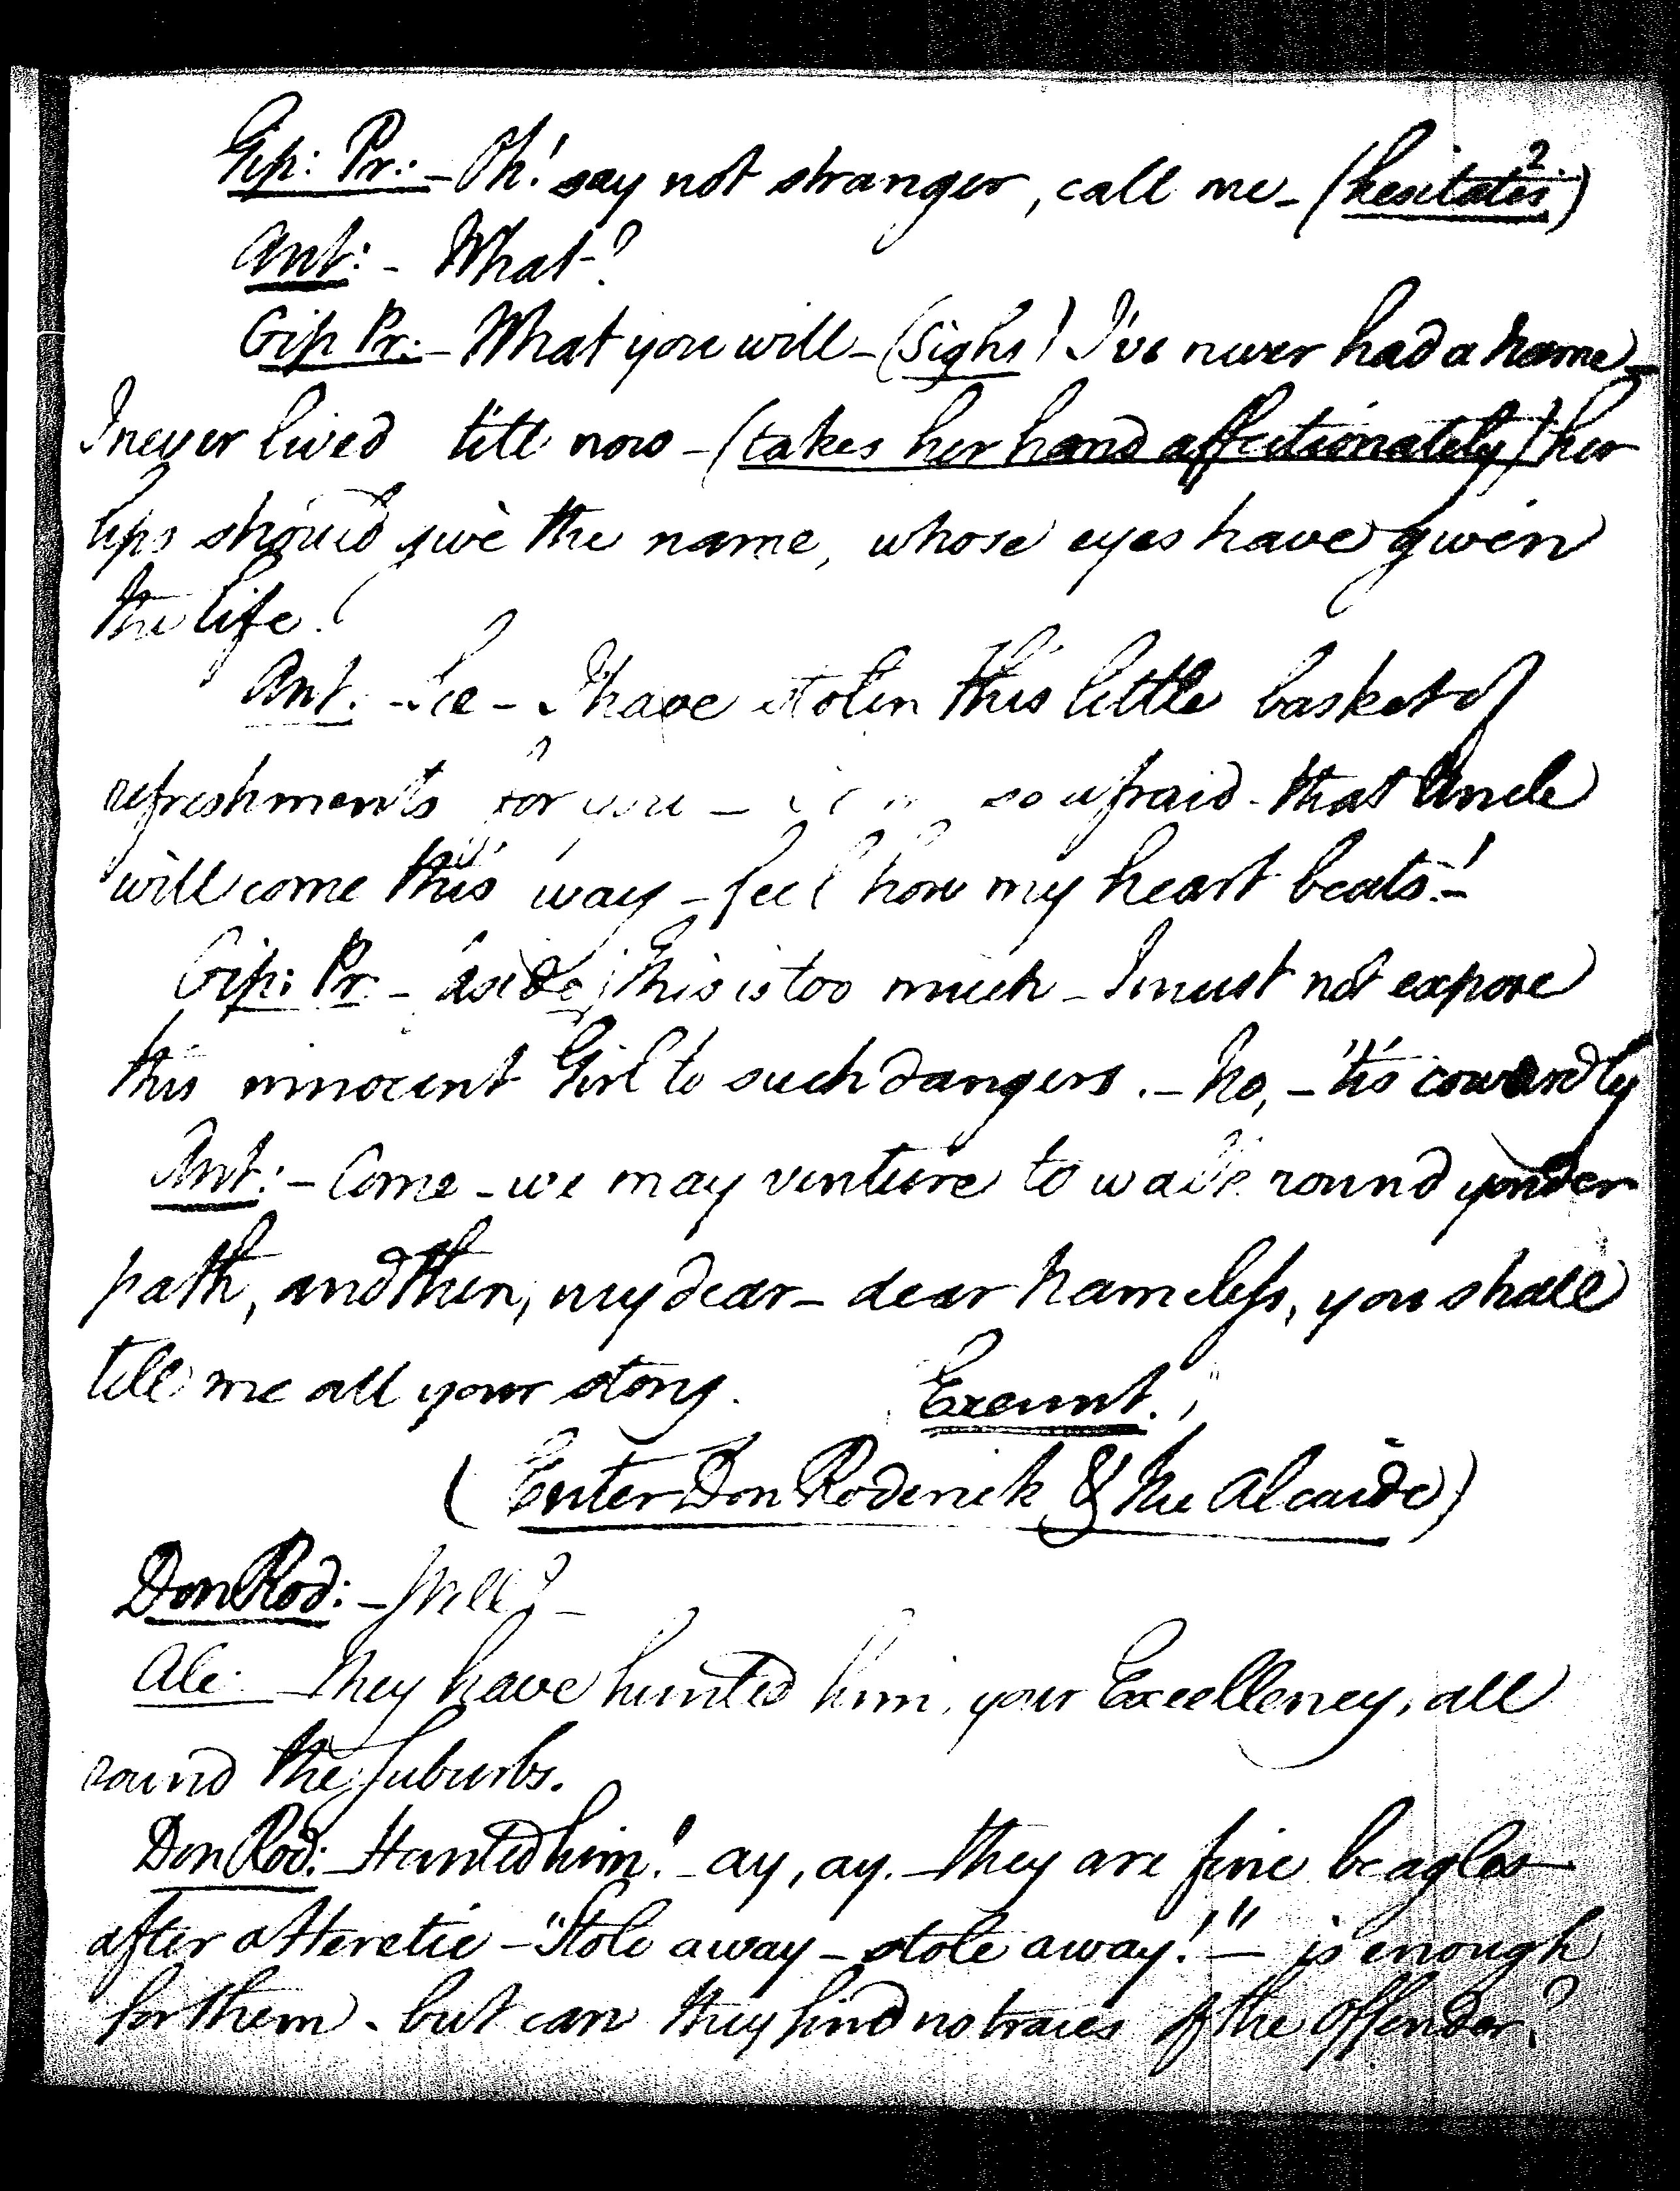 Gip: Pr: - Oh! say not stranger, call me - (hesitates)
2
Ant: - What?
Gip Pr: - What you will - (sighs) I've never had a name -
I never lived till now - (takes her hand affectionately) her
lips should give the name, whose eyes have given
the life.
Ant: - See - I have stolen this little basket of
refreshments for you - so afraid that Uncle
will come this way - feel how my heart beats! -
Gip: Pr - aside) This is too much - I must not expose
this innocent Girl to such dangers. - No, - 'tis cowardly
Ant: - Come - we may venture to walk round yonder
path, and then, my dear - dear Nameless, you shall
tell me all your story. Exeunt.
(Enter Don Roderick & the Alcaide)
Don Rod: - Well? -
Alc: They have hunted him, your Excellency, all
round the Suburbs.
Don Rod: - Hunted him! - ay, ay. - They are fine beagles
after a Heretic - "Stole away - stole away!" - is enough
for them - but can they find no traces of the Offender?